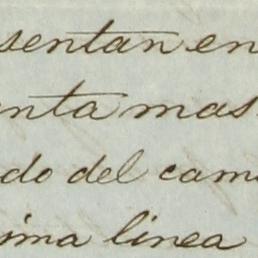 sentan en
enta mas
do del cam
ima linea